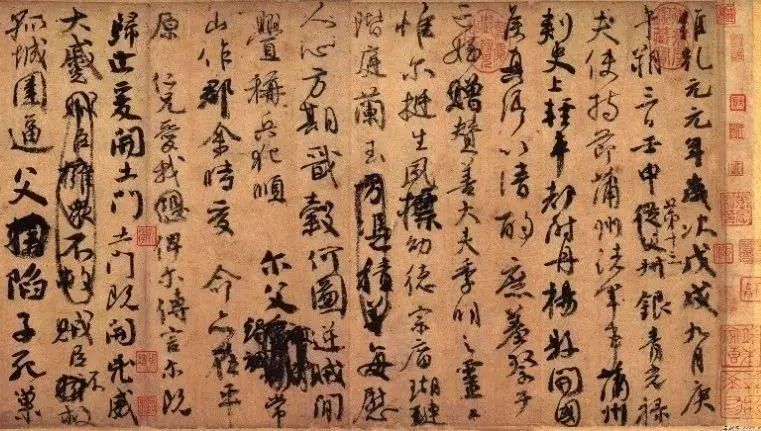 維乾元元年歲次戊戌九月庚
午朔三日壬申第十三從父銀青光祿
夫使持節蒲州諸軍事蒲州
刺史上輕車都尉丹楊縣開國
侯真卿以清酌庶羞祭于
亡姪贈贊善大夫季明之靈曰
惟爾挺生夙標幼德宗廟瑚璉
階庭蘭玉方憑積善每慰
人心方期戩穀何圖逆賊閒
釁稱兵犯順爾父竭誠常
山作郡余時受命亦在平
原仁兄愛我恐俾爾傳言爾既
歸止爰開土門土門既開兇威
大蹙賊臣擁眾不救賊臣不救
孤城圍逼父陷子死巢